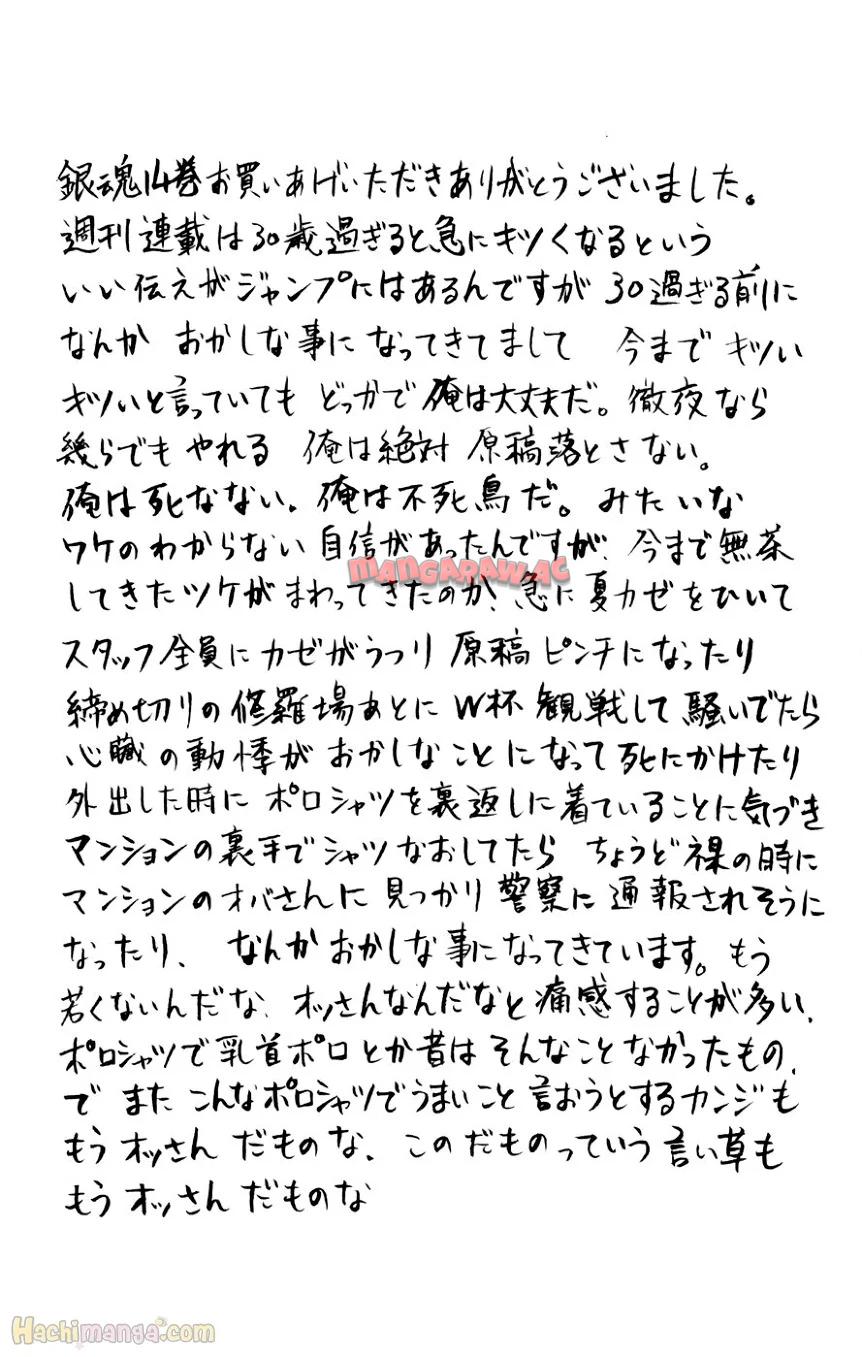 銀魂14巻お買いあげいただきありがとうございました。
週刊連載は30歳過ぎると急にキツくなるという
いい伝えがジャンプにはあるんですが 30過ぎる前に
なんか おかしな事になってきてまして 今まで キツい
キツいと言っていても どっかで 俺は大丈夫だ。徹夜なら
幾らでもやれる 俺は絶対 原稿落とさない。
俺は死なない。俺は不死鳥だ。みたいな
ワケのわからない自信があったんですが、今まで無茶
MANGARAW.AC
してきたツケがまわってきたのか、急に夏カゼをひいて
スタッフ全員にカゼがうつり 原稿ピンチになったり
締め切りの修羅場あとに W杯観戦して騒いでたら
心臓の動悸がおかしなことになって死にかけたり
外出した時に ポロシャツを裏返しに着ていることに気づき
マンションの裏手でシャツなおしてたら ちょうど裸の時に
マンションのオバさんに見つかり 警察に通報されそうに
なったり、なんかおかしな事になってきています。もう
若くないんだな、オッさんなんだなと痛感することが多い、
ポロシャツで乳首ポロとか昔はそんなことなかったもの、
で また こんなポロシャツでうまいこと言おうとするカンジも
もう オッさん だものな、このだものっていう言い草も
もう オッさん だものな
Hachimanga.com